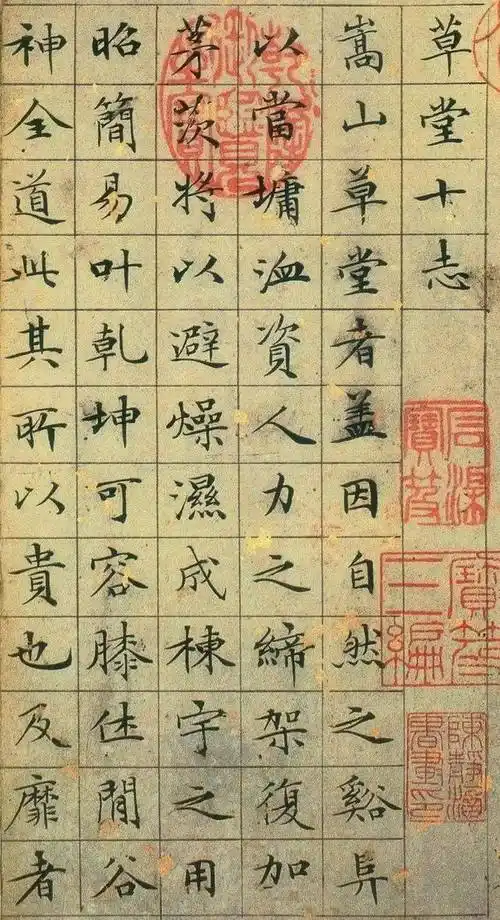 草堂十志
石渠寶笈
寶笈三編
嵩山草堂者盖因自然之谿阜
以當墉洫資人力之締架復加
茅茨將以避燥濕成棟宇之用
昭簡易叶乾坤可容膝休閒谷
神全道此其所以貴也及靡者